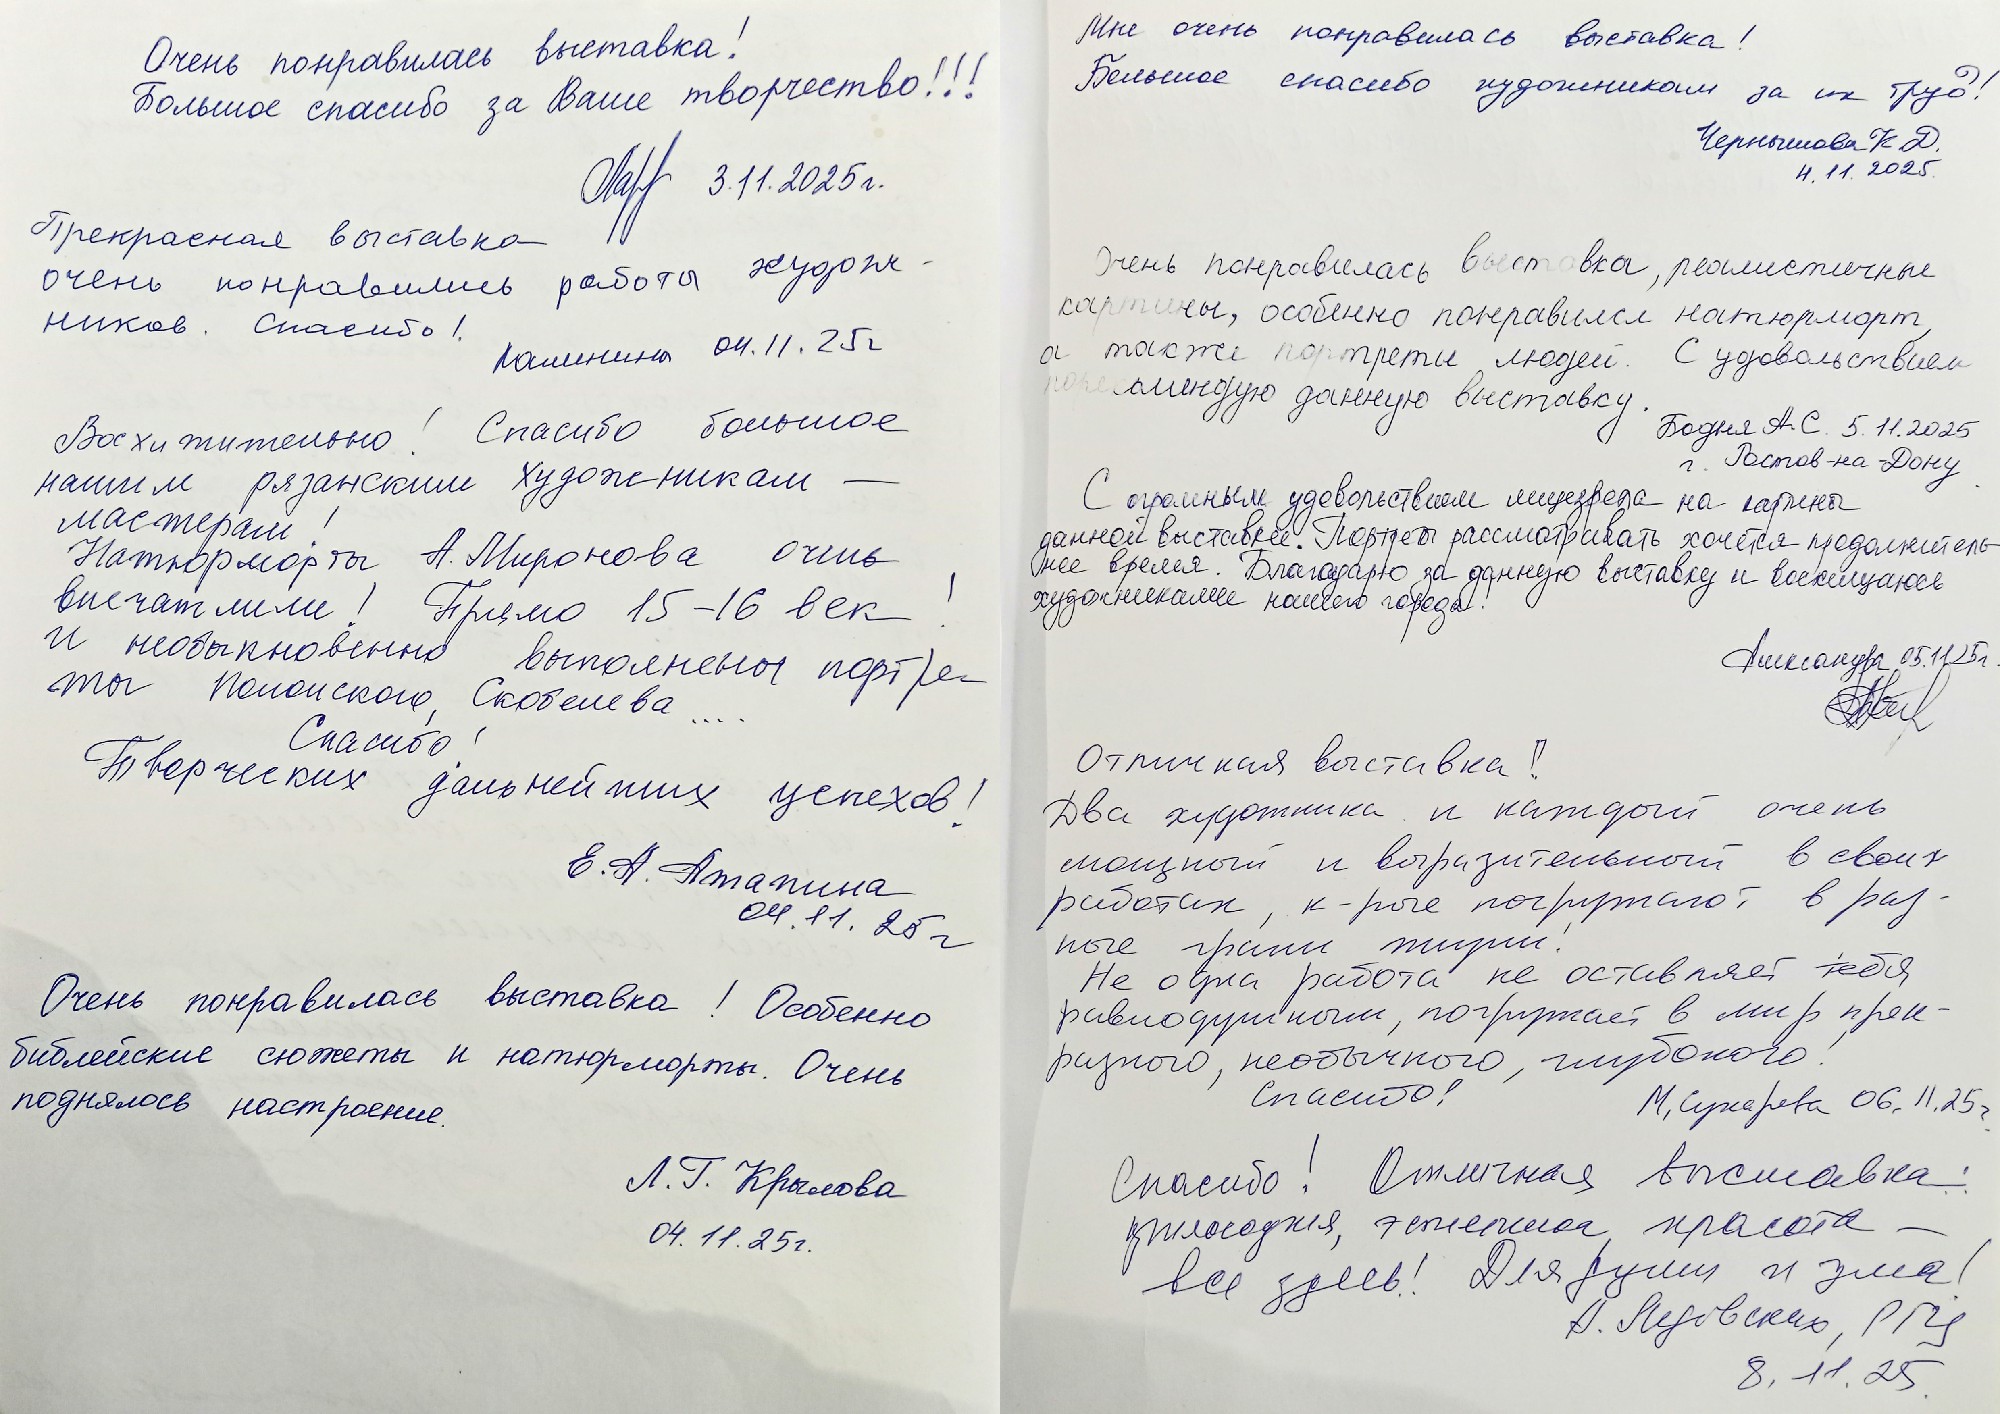 Очень понравилась выставка!
Большое спасибо за Ваше творчество!!!
3.11.2025г.
Прекрасная выставка
очень понравились работы худож-
ников. Спасибо!
Калинины 04.11.25г
Восхитительно! Спасибо большое
нашим рязанским художникам —
мастерам!
Натюрморты А. Миронова очень
впечатлили! Прямо 15-16 век!
и необыкновенно выполнены портре-
ты Полонского, Скобелева....
Спасибо!
Творческих дальнейших успехов!
Е.А. Атапина
04.11.25г
Очень понравилась выставка! Особенно
библейские сюжеты и натюрморты. Очень
поднялось настроение.
Л.Г. Крылова
04.11.25г.
Мне очень понравилась выставка!
Большое спасибо художникам за их труд!
Чернышова К.Д.
4.11.2025.
Очень понравилась выставка, реалистичные
картины, особенно понравился натюрморт,
а также портреты людей. С удовольствием
порекомендую данную выставку.
Бодня А.С. 5.11.2025
г. Ростов-на-Дону
С огромным удовольствием на картины
данной выставке. Портреты рассматривать хочется продолжитель
нее время. Благодарю за данную выставку и восхищаюсь
художниками нашего города!
Александра 05.11.25г.
Отличная выставка!
Два художника и каждый очень
мощный и выразительный в своих
работах, к-рые погружают в раз-
ные грани жизни!
Не одна работа не оставляет тебя
равнодушным, погружает в мир прек-
разного, необычного, глубокого!
Спасибо!
М, Сухарева 06.11.25г.
Спасибо! Отличная выставка:
философия, эстетика, красота —
все здесь! Для души и ума!
8.11.25.